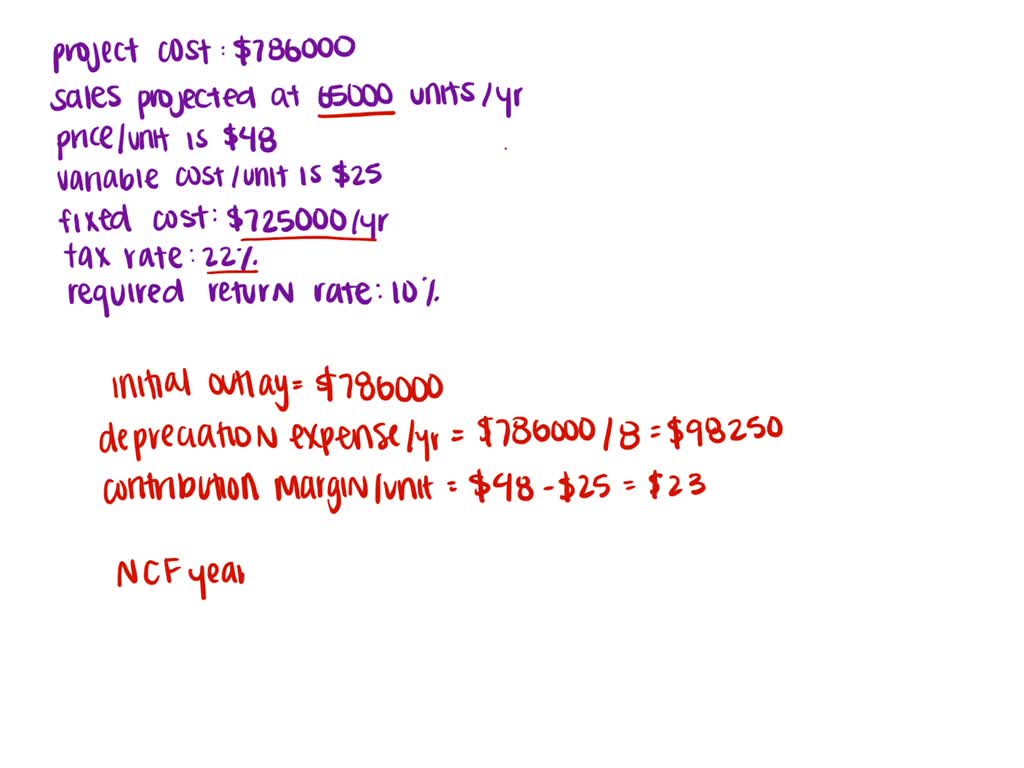 project cost: $786000
sales projected at 65000 units/yr
price/unit is $48
variable cost/unit is $25
fixed cost: $725000/yr
tax rate: 22%
required return rate: 10%
initial outlay = $786000
depreciation expense/yr = $786000/8 = $98250
contribution margin/unit = $48 - $25 = $23
NCF year